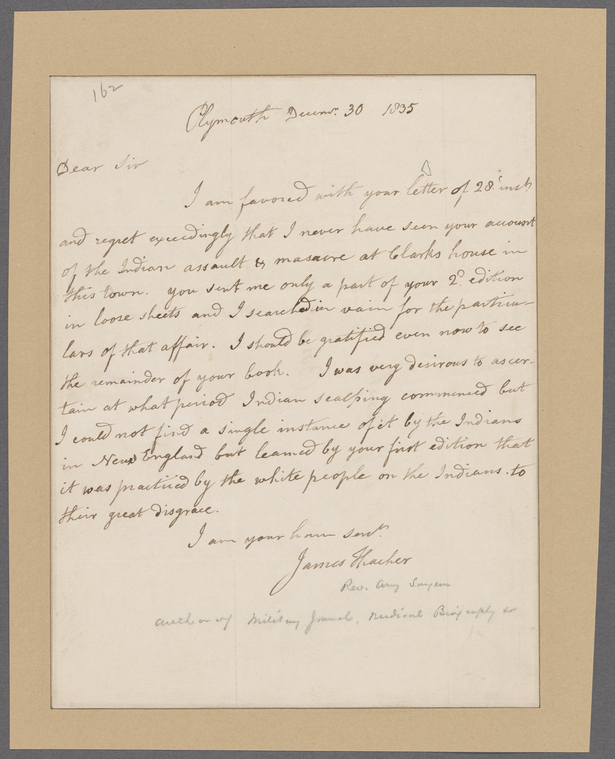 162
Plymouth Decemr. 30 1835
Dear Sir
I am favored with your letter of 28t inst
and regret exceedingly that I never have seen your account
of the Indian assault & masacre at Clarks house in
this town. you sent me only a part of your 2d edition
in loose sheets and I searched in vain for the particu-
lars of that affair. I should be gratified even now to see
the remainder of your book. I was very desirous to ascer-
tain at what period Indian scalping commenced but
I could not find a single instance of it by the Indians
in New England but learned by your first edition that
it was practiced by the white people on the Indians. to
their great disgrace.
I am your hum servt.
James Thacher
Rev. Army Surgeon
author of Military Journal, Medical Biography &c